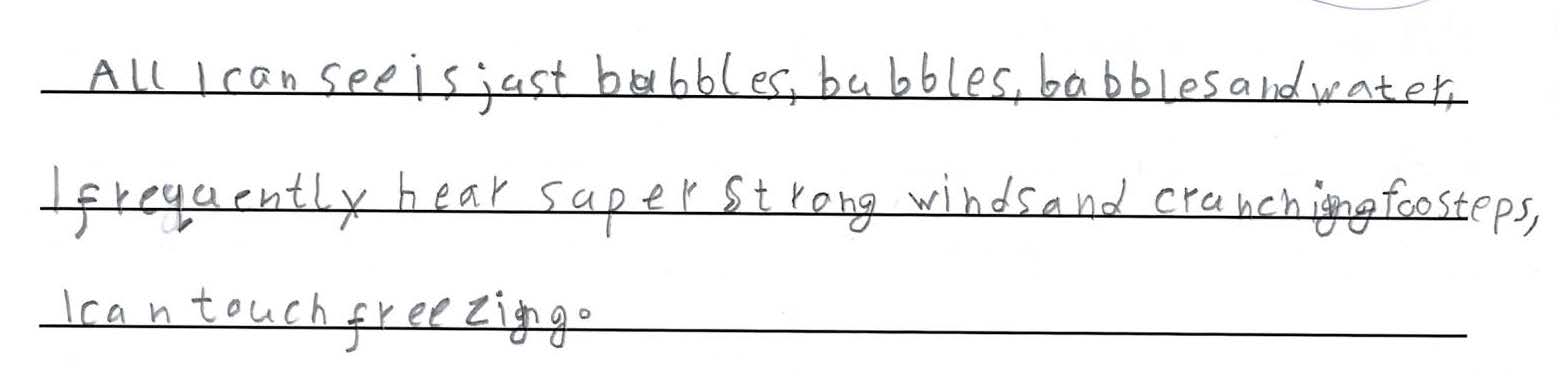 All I can see is just bubbles, bubbles, bubbles and water,
I frequently hear super strong winds and crunching foosteps,
I can touch freezing.